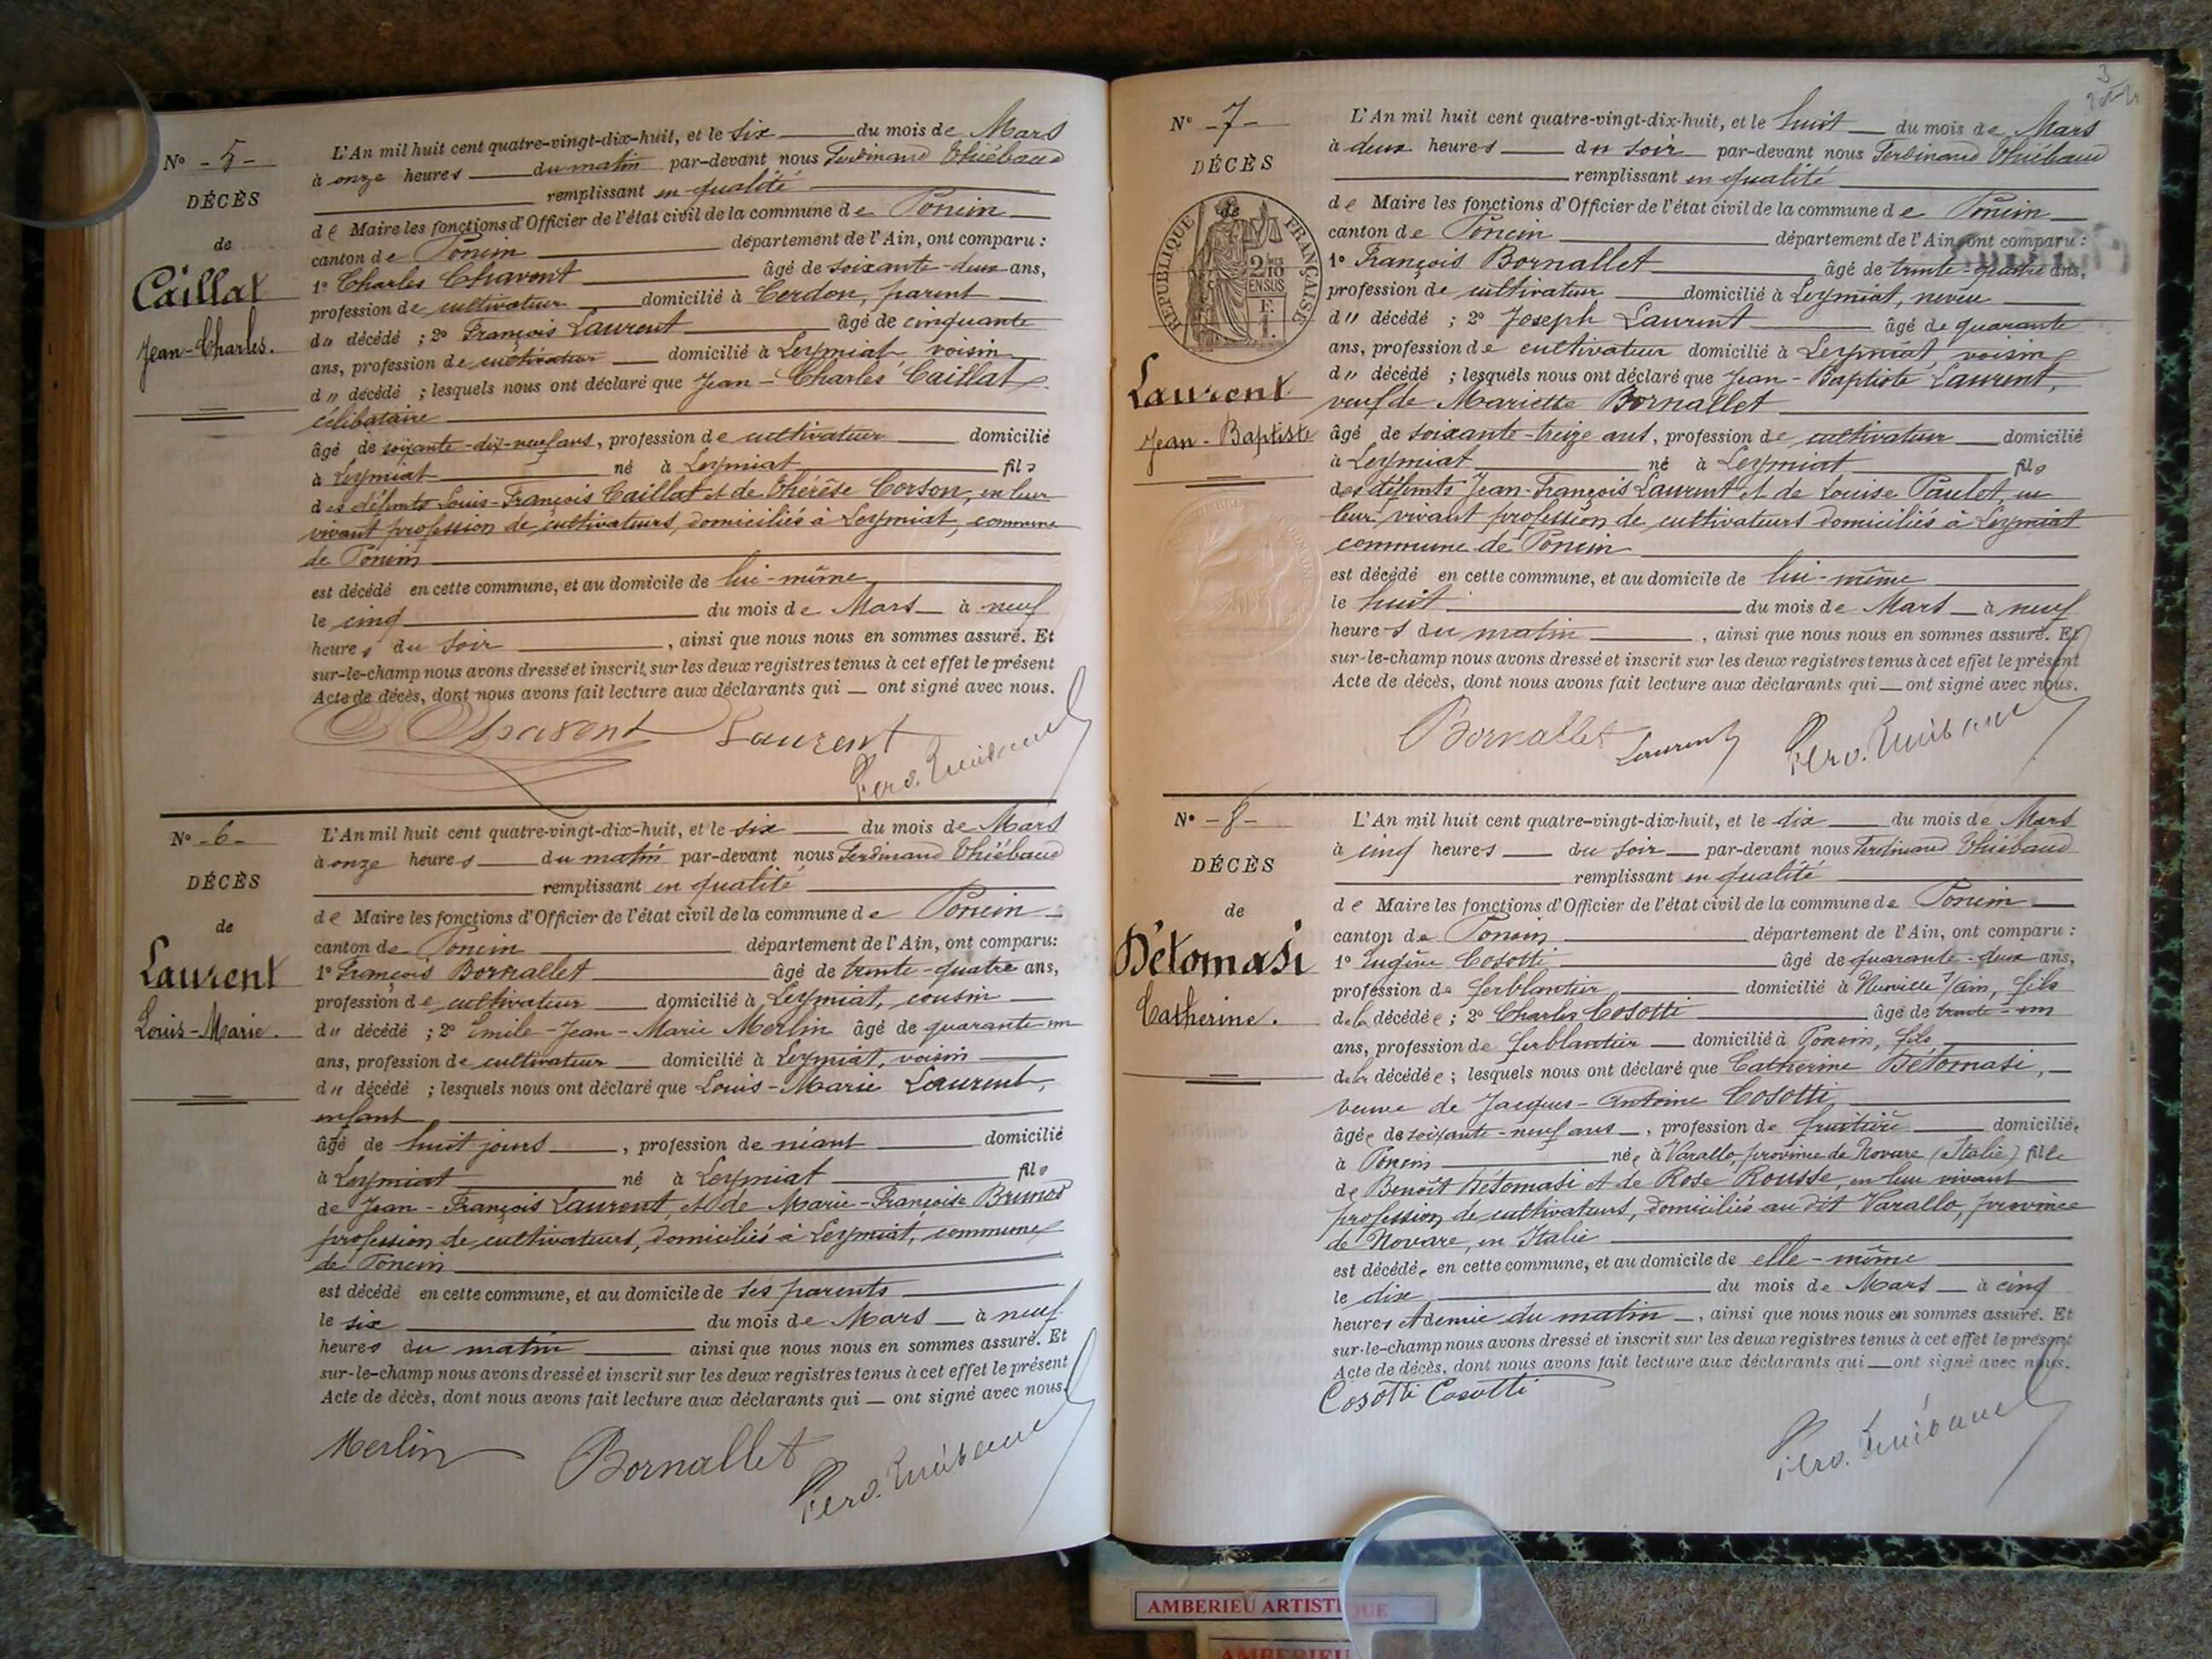 N° - 5 -
DÉCÈS
de
Caillat
Jean-Charles.
L'An mil huit cent quatre-vingt-dix-huit, et le six du mois de Mars
à onze heures du matin par-devant nous Ferdinand Thiébaud
remplissant en qualité
de Maire les fonctions d'Officier de l'état civil de la commune de Poncin
canton de Poncin département de l'Ain, ont comparu :
1° Charles Chavent âgé de soixante-deux ans,
profession de cultivateur domicilié à Cerdon, parent
du décédé ; 2° François Laurent âgé de cinquante
ans, profession de cultivateur domicilié à Leymiat voisin
du décédé ; lesquels nous ont déclaré que Jean-Charles Caillat
célibataire
âgé de soixante-dix-neuf ans, profession de cultivateur domicilié
à Leymiat né à Leymiat fils
des défunts Louis-François Caillat et de Thérèse Corson, en leur
vivant profession de cultivateurs, domiciliés à Leymiat, commune
de Poncin
est décédé en cette commune, et au domicile de lui-même
le cinq du mois de Mars à neuf
heures du soir , ainsi que nous nous en sommes assuré. Et
sur-le-champ nous avons dressé et inscrit, sur les deux registres tenus à cet effet le présent
Acte de décès, dont nous avons fait lecture aux déclarants qui ont signé avec nous.
Laurent
N° - 6 -
DÉCÈS
de
Laurent
Louis-Marie.
L'An mil huit cent quatre-vingt-dix-huit, et le six du mois de Mars
à onze heures du matin par-devant nous Ferdinand Thiébaud
remplissant en qualité
de Maire les fonctions d'Officier de l'état civil de la commune de Poncin
canton de Poncin département de l'Ain, ont comparu:
1° François Bornallet âgé de trente-quatre ans,
profession de cultivateur domicilié à Leymiat, cousin
du décédé ; 2° Emile-Jean-Marie Merlin âgé de quarante-un
ans, profession de cultivateur domicilié à Leymiat, voisin
du décédé ; lesquels nous ont déclaré que Louis-Marie Laurent,
enfant
âgé de huit jours , profession de néant domicilié
à Leymiat né à Leymiat fils
de Jean-François Laurent, et de Marie-Françoise Brunos
profession de cultivateurs, domiciliés à Leymiat, commune
de Poncin
est décédé en cette commune, et au domicile de ses parents
le six du mois de Mars à neuf
heures du matin ainsi que nous nous en sommes assuré. Et
sur-le-champ nous avons dressé et inscrit sur les deux registres tenus à cet effet le présent
Acte de décès, dont nous avons fait lecture aux déclarants qui ont signé avec nous.
Merlin Bornallet
3
N° - 7 -
DÉCÈS
de
RÉPUBLIQUE FRANÇAISE
2/10 EN SUS
Laurent
Jean-Baptiste
L'An mil huit cent quatre-vingt-dix-huit, et le huit du mois de Mars
à deux heures du soir par-devant nous Ferdinand Thiébaud
remplissant en qualité
de Maire les fonctions d'Officier de l'état civil de la commune de Poncin
canton de Poncin département de l'Ain, ont comparu :
1° François Bornallet âgé de trente-quatre ans,
profession de cultivateur domicilié à Leymiat, neveu
du décédé ; 2° Joseph Laurent âgé de quarante
ans, profession de cultivateur domicilié à Leymiat, voisin
du décédé ; lesquels nous ont déclaré que Jean-Baptiste Laurent,
veuf de Mariette Bornallet
âgé de soixante-treize ans, profession de cultivateur domicilié
à Leymiat né à Leymiat fils
des défunts Jean-François Laurent et de Louise Paulet, en
leur vivant profession de cultivateurs domiciliés à Leymiat
commune de Poncin
est décédé en cette commune, et au domicile de lui-même
le huit du mois de Mars à neuf
heures du matin , ainsi que nous nous en sommes assuré. Et
sur-le-champ nous avons dressé et inscrit sur les deux registres tenus à cet effet le présent
Acte de décès, dont nous avons fait lecture aux déclarants qui ont signé avec nous.
Bornallet Laurent
N° - 8 -
DÉCÈS
de
Détomasi
Catherine.
L'An mil huit cent quatre-vingt-dix-huit, et le dix du mois de Mars
à cinq heures du soir par-devant nous Ferdinand Thiébaud
remplissant en qualité
de Maire les fonctions d'Officier de l'état civil de la commune de Poncin
canton de Poncin département de l'Ain, ont comparu :
1° Eugène Cosotti âgé de quarante-deux ans,
profession de ferblantier domicilié à Neuville s/ain, fils
de la décédée ; 2° Charles Cosotti âgé de trente-un
ans, profession de ferblantier domicilié à Poncin, fils
de la décédée ; lesquels nous ont déclaré que Catherine Détomasi,
veuve de Jacques-Antoine Cosotti,
âgée de soixante-neuf ans , profession de fruitière domiciliée
à Poncin née à Varallo, province de Novare (Italie) fille
de Benoît Détomasi et de Rose Rousse, en leur vivant
profession de cultivateurs, domiciliés au dit Varallo, province
de Novare, en Italie
est décédée en cette commune, et au domicile de elle-même
le dix du mois de Mars à cinq
heures et demie du matin , ainsi que nous nous en sommes assuré. Et
sur-le-champ nous avons dressé et inscrit sur les deux registres tenus à cet effet le présent
Acte de décès, dont nous avons fait lecture aux déclarants qui ont signé avec nous.
Cosotti Cosotti
AMBERIEU ARTISTIQUE
AMBERIEU